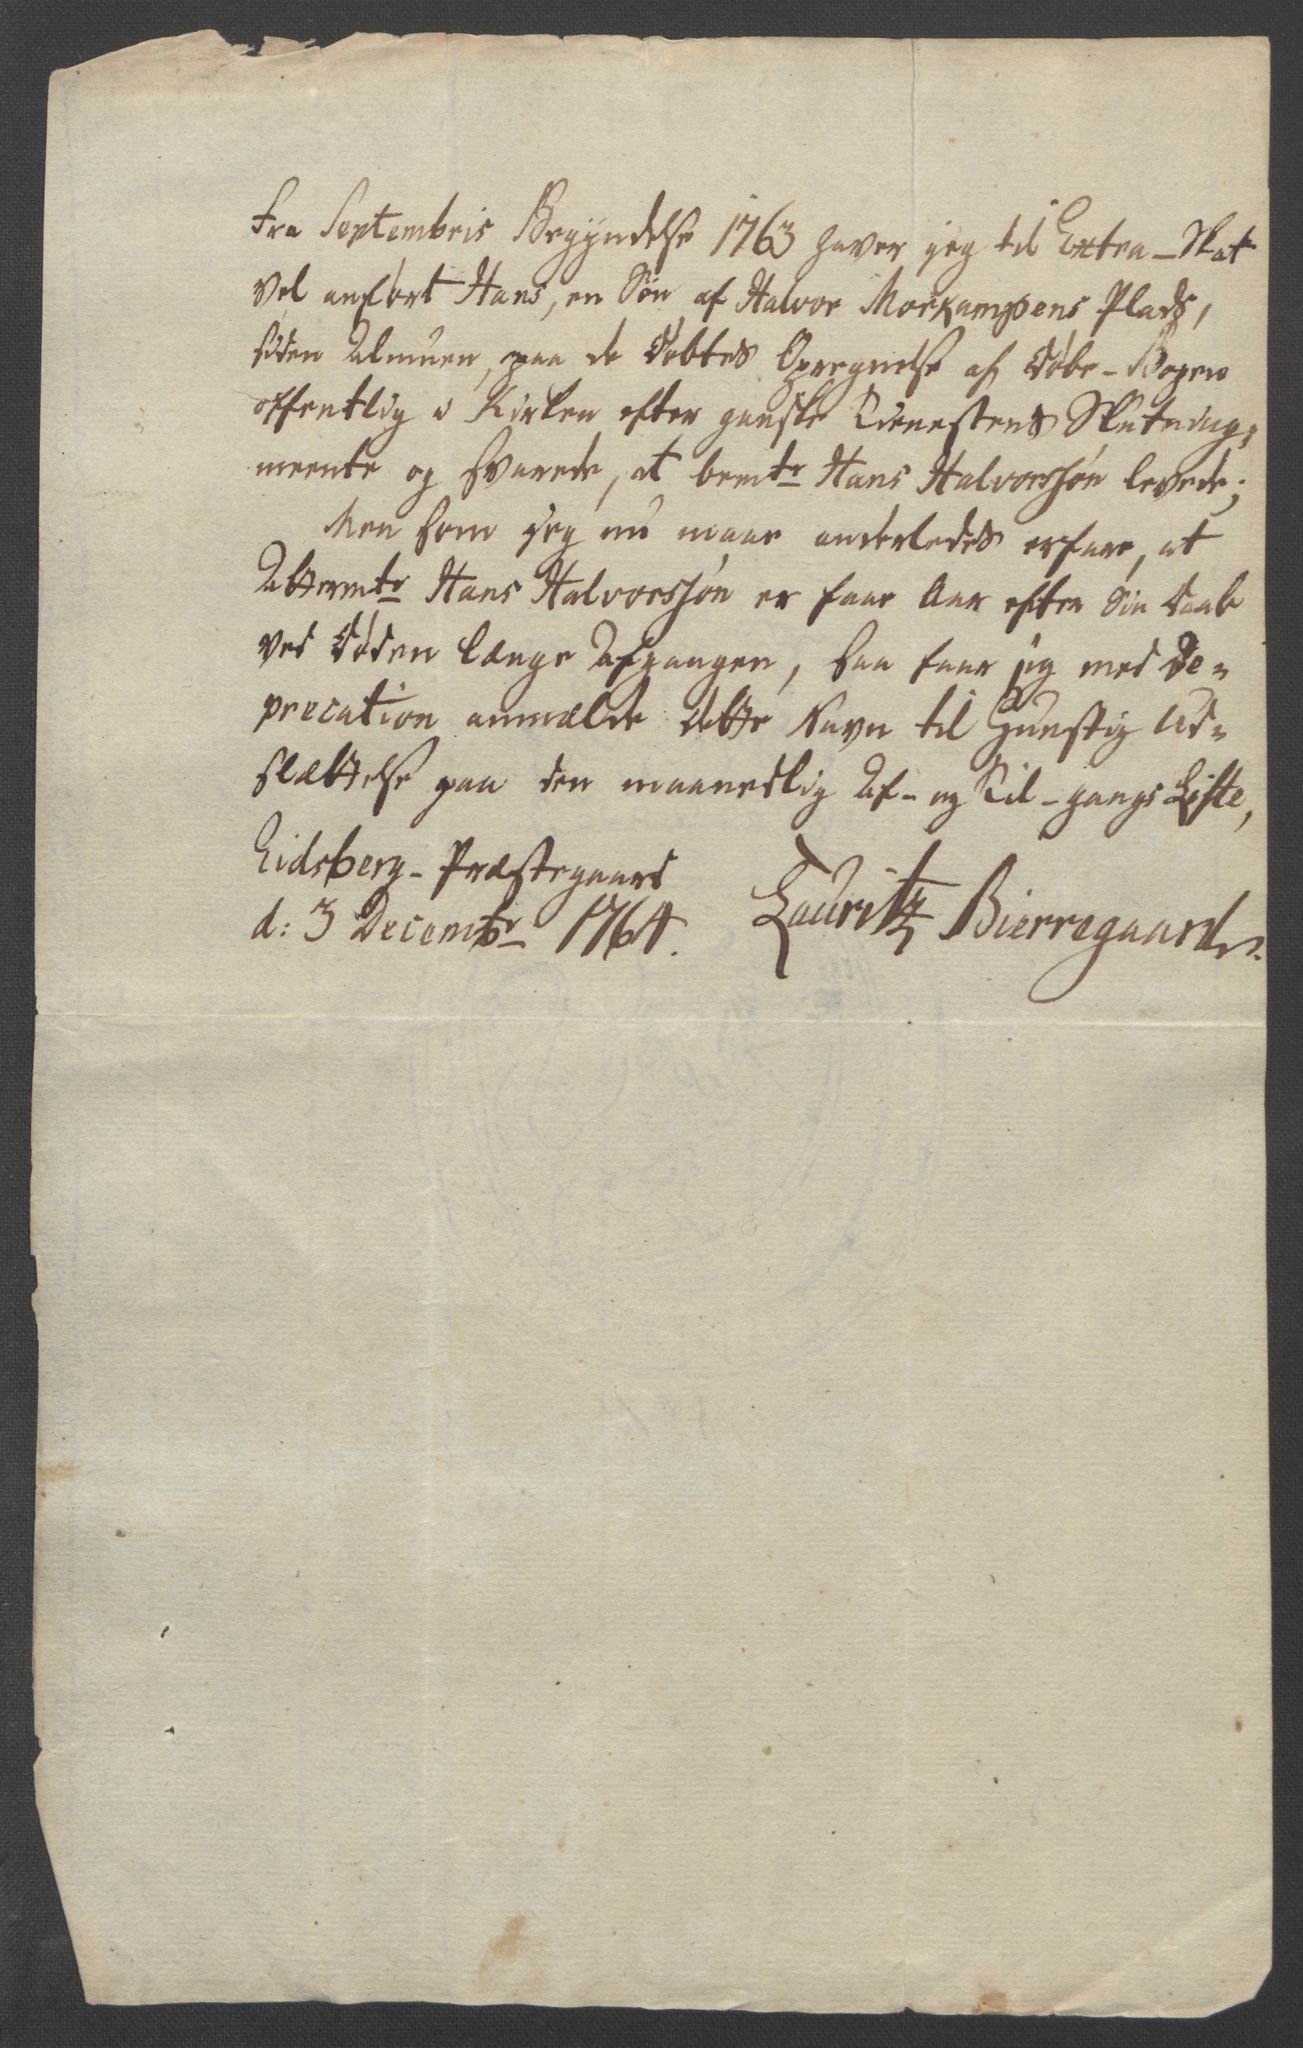 Fra Septembris Begyndelse 1763 haver jeg til Extra-Skat
vel anført Hans, en Søn af Halvor Morkampens Plads,
siden Almuen, paa de Døbtes Opregnelse af Døbe-Bogen
offentlig i Kirken efter ganske Tienestens Slutning,
meente og svarede, at bemte Hans Halvorsøn levede;
Men som jeg nu maae anderledes erfare, at
Attermte Hans Halvorssøn er faae Aar efter Sin Daab
ved Døden længe Afgangen, saa faar jeg med De=
precation anmælde dette Navn til Gunstig Ud=
slættelse paa den maanedlig Af- og Til-gangs Liste,
Eidsberg-Præstegaard
d: 3 Decembr 1764. Lauritz Bierregaard